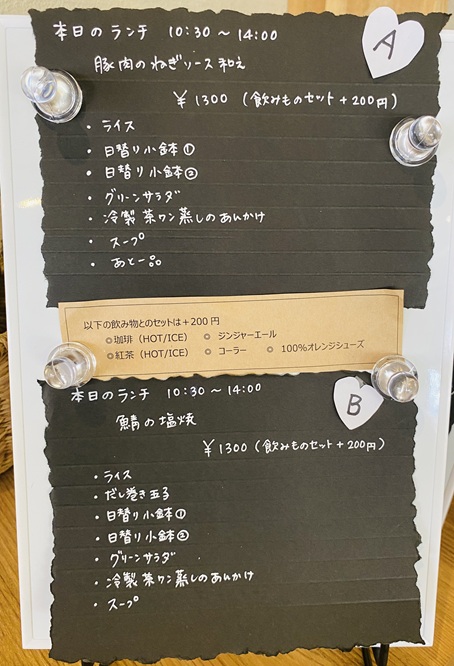 本日のランチ 10:30～14:00
A
豚肉のねぎソース和え
￥1300 (飲みものセット＋200円)
・ライス
・日替り小鉢①
・日替り小鉢②
・グリーンサラダ
・冷製茶ワン蒸しのあんかけ
・スープ
・あと一品
以下の飲み物とのセットは＋200円
◎珈琲（HOT/ICE） ◎ ジンジャーエール
◎紅茶（HOT/ICE） ◎ コーラー ◎ 100%オレンジシューズ
本日のランチ 10:30～14:00
B
鯖の塩焼
￥1300 (飲みものセット＋200円)
・ライス
・だし巻き玉子
・日替り小鉢①
・日替り小鉢②
・グリーンサラダ
・冷製茶ワン蒸しのあんかけ
・スープ